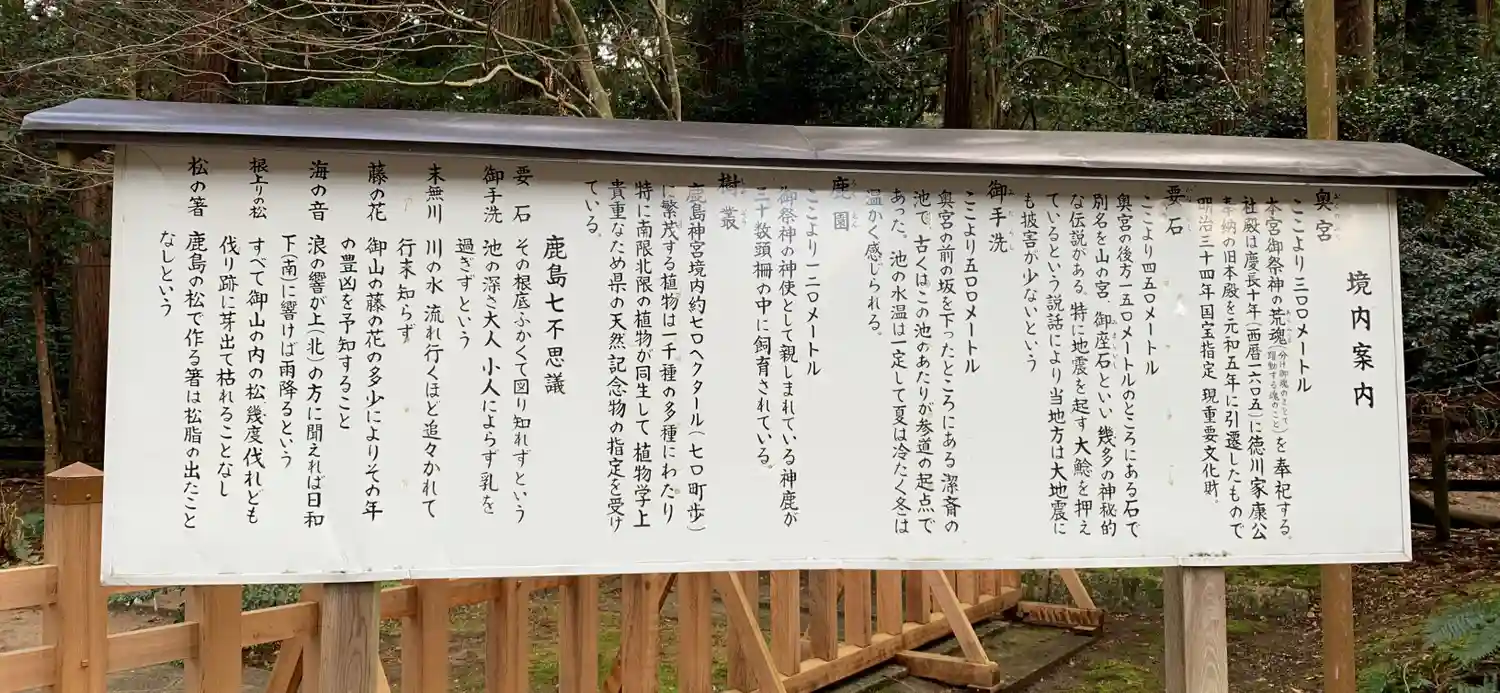 境内案内
奥宮
ここより三〇〇メートル
本宮御祭神の荒魂(分け御魂のことで躍動する魂のこと)を奉祀する。
社殿は慶長十年(西暦一六〇五)に徳川家康公
奉納の旧本殿を元和五年に引遷したもので
明治三十四年国宝指定 現重要文化財。
要石
ここより四五〇メートル
奥宮の後方一五〇メートルのところにある石で
別名を山の宮、御座石といい幾多の神秘的
な伝説がある。特に地震を起す大鯰を押え
ているという説話により当地方は大地震に
も披害が少ないという
御手洗
ここより五〇〇メートル
奥宮の前の坂を下ったところにある潔斎の
池で、古くはこの池のあたりが参道の起点で
あった。池の水温は一定して夏は冷たく冬は
温かく感じられる。
鹿園
ここより一二〇メートル
御祭神の神使として親しまれている神鹿が
三十数頭柵の中に飼育されている。
樹叢
鹿島神宮境内約七〇ヘクタール(七〇町歩)
に繁茂する植物は一千種の多種にわたり
特に南限北限の植物が同生して植物学上
貴重なため県の天然記念物の指定を受け
ている。
鹿島七不思議
要石 その根底ふかくて図り知れずという
御手洗 池の深さ大人 小人によらず乳を
過ぎずという
末無川 川の水 流れ行くほど追々かれて
行末 知らず
藤の花 御山の藤の花の多少によりその年
の豊凶を予知すること
海の音 浪の響が上(北)の方に聞えれば日和
下(南)に響けば雨降るという
根上りの松 すべて御山の内の松幾度伐れども
伐り跡に芽出て枯れることなし
松の箸 鹿島の松で作る箸は松脂の出たこと
なしという